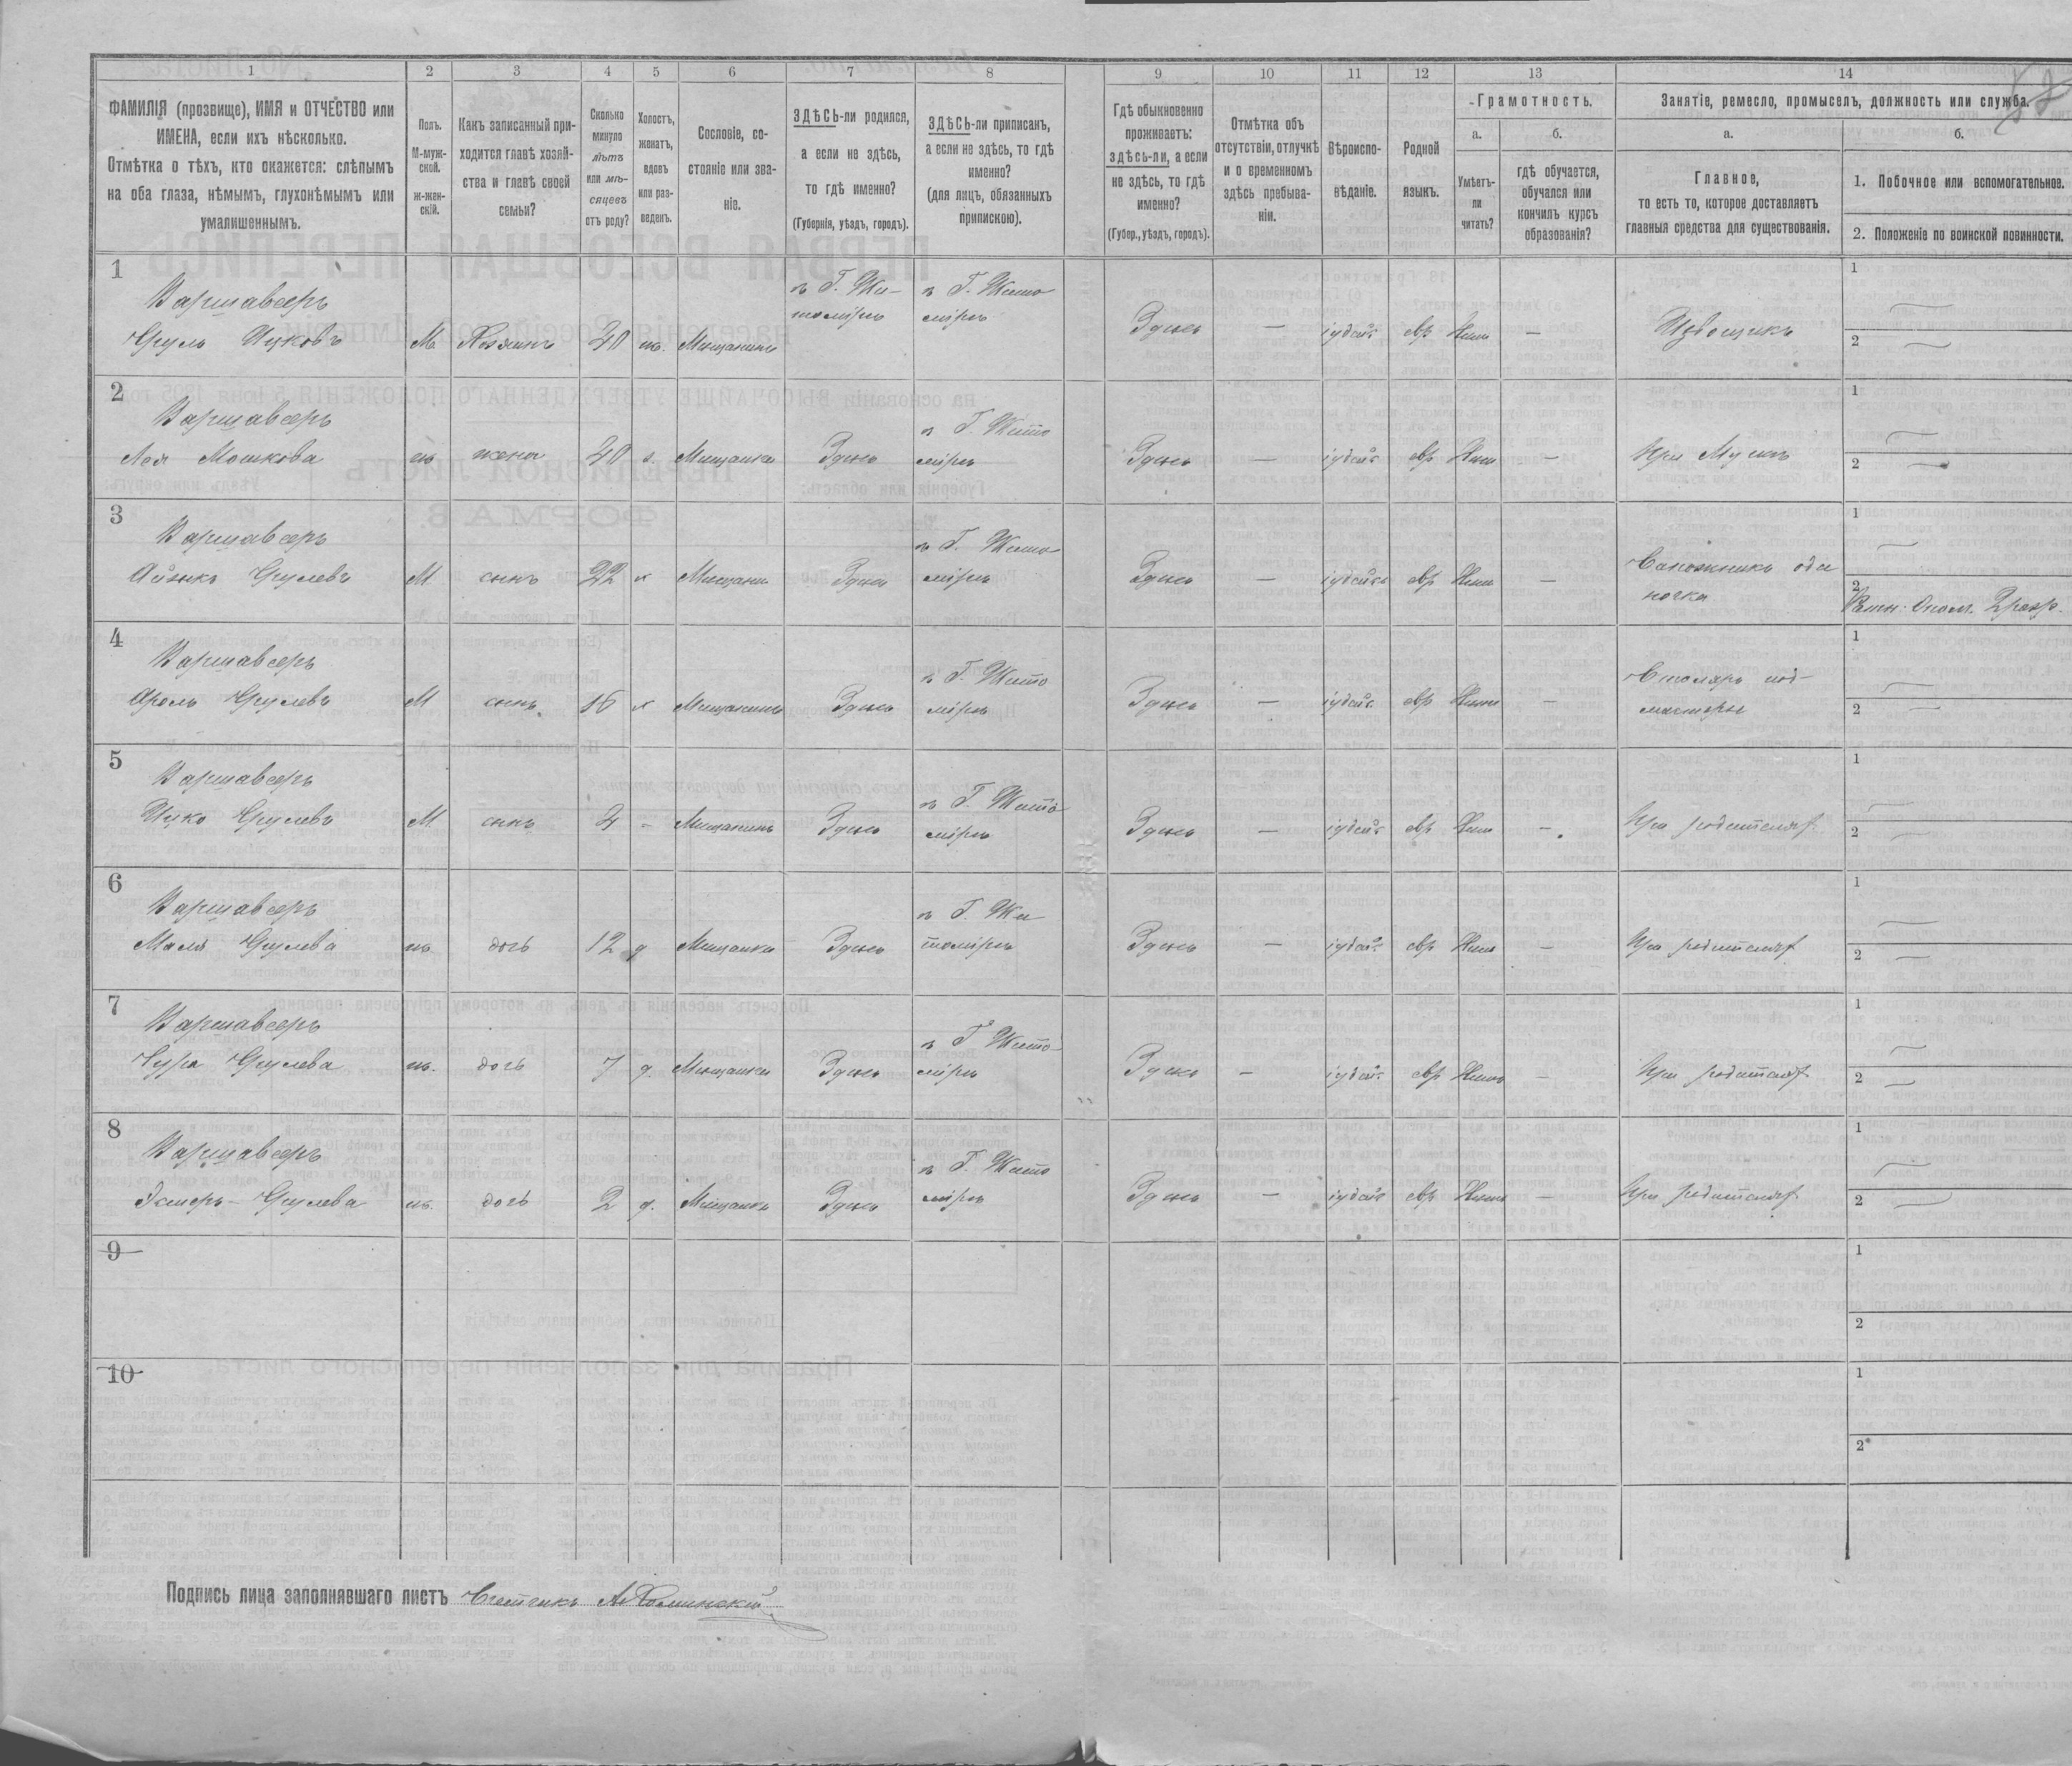 1
2
3
4
5
6
7
8
9
10
11
12
13
14
ФАМИЛІЯ (прозвище), ИМЯ и ОТЧЕСТВО или
ИМЕНА, если ихъ нѣсколько.
Отмѣтка о тѣхъ, кто окажется: слѣпымъ
на оба глаза, нѣмымъ, глухонѣмымъ или
умалишеннымъ.
Полъ.
М-муж-
ской.
ж-жен-
скій.
Какъ записанный при-
ходится главѣ хозяй-
ства и главѣ своей
семьи?
Сколько
минуло
лѣтъ
или мѣ-
сяцевъ
отъ роду?
Холостъ,
женатъ,
вдовъ
или раз-
веденъ.
Сословіе, со-
стояніе или зва-
ніе.
ЗДѢСЬ-ли родился,
а если не здѣсь,
то гдѣ именно?
(Губернія, уѣздъ, городъ).
ЗДѢСЬ-ли приписанъ,
а если не здѣсь, то гдѣ
именно?
(для лицъ, обязанныхъ
припискою).
Гдѣ обыкновенно
проживаетъ:
здѣсь-ли, а если
не здѣсь, то гдѣ
именно?
(Губер., уѣздъ, городъ).
Отмѣтка объ
отсутствіи, отлучкѣ
и о временномъ
здѣсь пребыва-
ніи.
Вѣроиспо-
вѣданіе.
Родной
языкъ.
Грамотность.
а.
б.
Умѣетъ-
ли
читать?
гдѣ обучается,
обучался или
кончилъ курсъ
образованія?
Занятіе, ремесло, промыселъ, должность или служба.
а.
б.
Главное,
то есть то, которое доставляетъ
главныя средства для существованія.
1. Побочное или вспомогательное.
2. Положеніе по воинской повинности.
1
Варшаверъ
Срулъ Ицковъ
М Хозяинъ 40 ж. Мещанинъ
въ Г. Жи-
томірѣ
въ Г. Жито
мірѣ
Здѣсь — іудейс евр Нѣтъ — Извощикъ
1
2
2
Варшаверъ
Лея Мошкова
ж жена 40 з. Мещанка Здѣсь
въ Г. Жито
мірѣ
Здѣсь — іудейс евр Нѣтъ — При Мужѣ
1
2
3
Варшаверъ
Айзикъ Срулевъ
М сынъ 22 х Мещани Здѣсь
въ Г. Жито
мірѣ
Здѣсь — іудейск евр Нѣтъ —
Сапожникъ оди
ночка
1
2
Ратн. Опол. 2 разр.
4
Варшаверъ
Сруловъ
М сынъ 16 х Мещанинъ Здѣсь
въ Г. Жито
мірѣ
Здѣсь — іудейс евр Нѣтъ —
Столяръ под-
мастеры
1
2
5
Варшаверъ
Ицко Срулевъ
М. сынъ 4 - Мещанинъ Здѣсь
въ Г. Жито
мірѣ
Здѣсь — іудейс евр Нѣтъ — При родителях
1
2
6
Варшаверъ
Маля Срулева
ж. дочь 12 д Мещанка Здѣсь
въ Г. Жи
томірѣ
Здѣсь — іудейс евр Нѣтъ — При родителях
1
2
7
Варшаверъ
Сура Срулева
ж. дочь 7 д. Мещанка Здѣсь
въ Г. Жито-
мірѣ
Здѣсь — іудейс евр Нѣтъ — При родителях
1
2
8
Варшаверъ
Эстеръ- Срулева
ж. дочь 2 д. Мещанка Здѣсь
въ Г. Жито
мірѣ
Здѣсь — іудейс евр Нѣтъ — При родителях
1
2
9
1
2
10
1
2
Подпись лица заполнявшаго листъ Счетчикъ